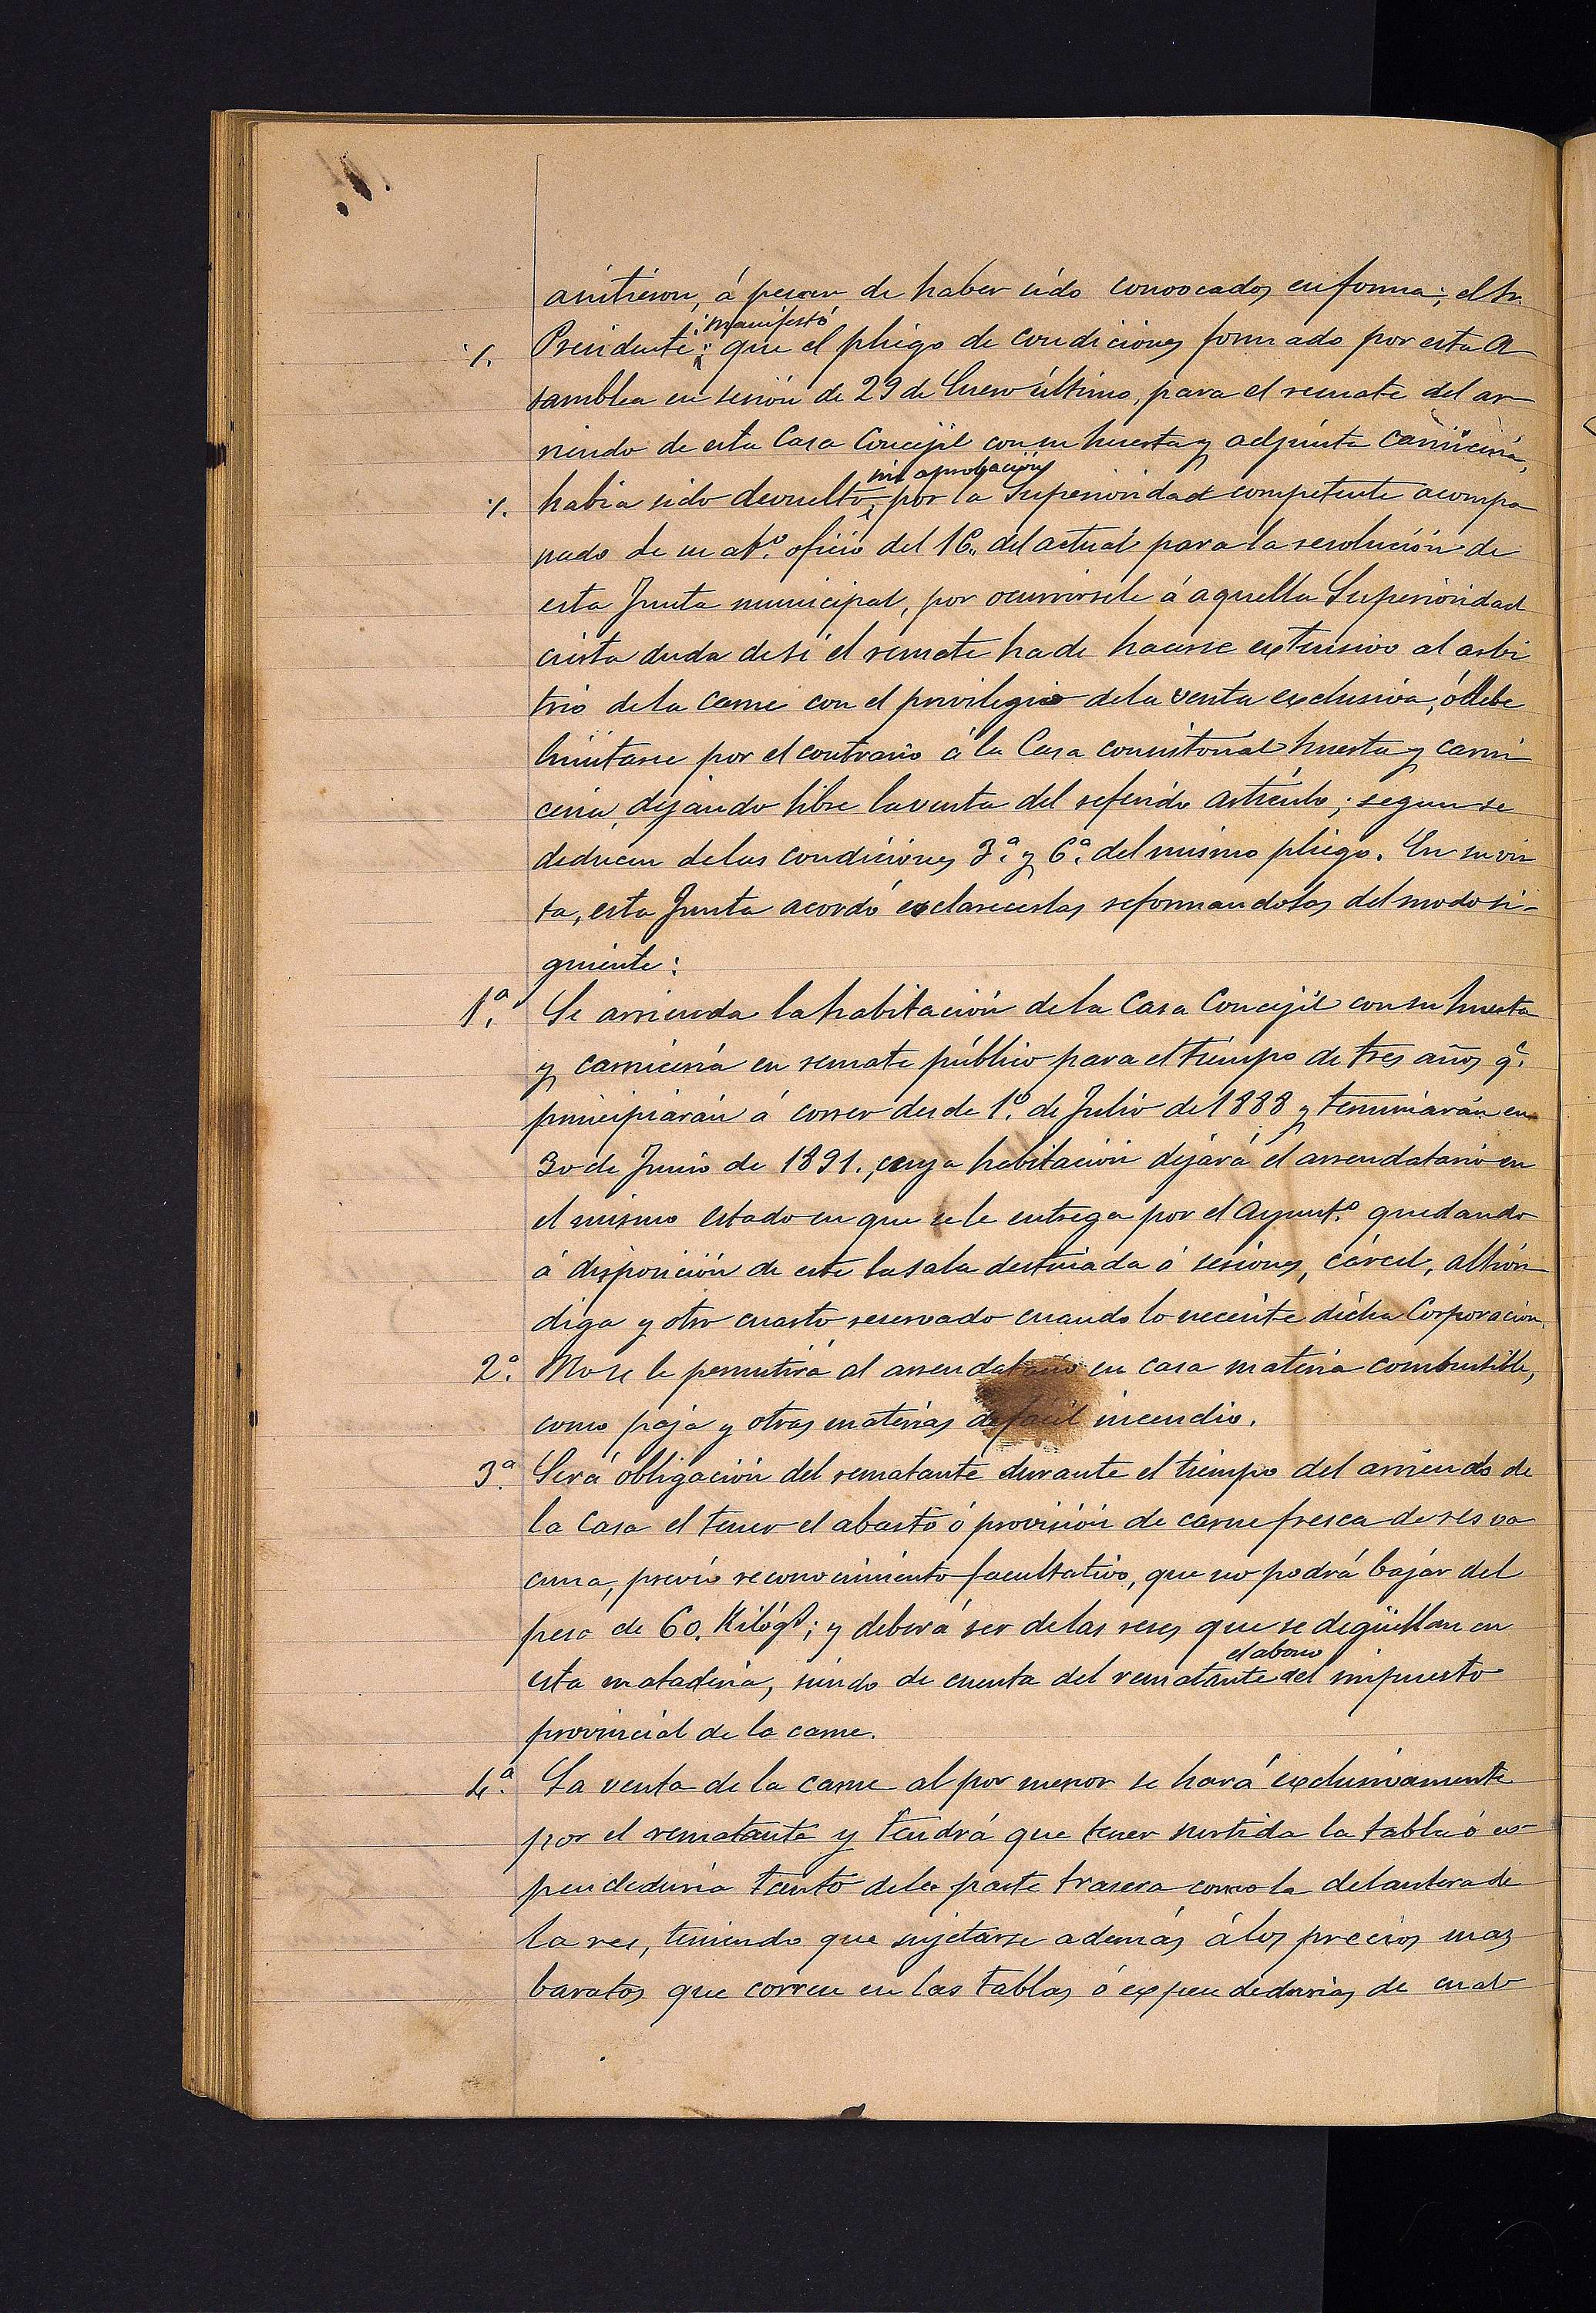 asistieron, á pesar de haber sido convocados en forma; el Sr.
manifestó
·/. Presidente; que el pliego de condiciones formado por esta A
samblea en sesión de 29 de Enero último, para el remate del ar
riendo de esta Casa Concejil con su huerta y adjunta carniceria,
sin aprobación
·/. habia sido devuelto, por la Superioridad competente acompa
ñado de su at.º oficio del 16,, del actual para la resolución de
esta Junta municipal, por ocurrirsele á aquella Superioridad
cierta duda de si el remate ha de hacerse extensivo al arbi
trio de la carne con el privilegio de la venta exclusiva, ó debe
limitarse por el contrario á la Casa consistorial huerta y carni
ceria, dejando libre la venta del referido artículo; segun se
deducen de las condiciones 3.ª y 6.ª del mismo pliego. En su vis
ta, esta Junta acordó esclarecerlas reformandolas del modo si-
guiente:
1.ª Se arrienda la habitación de la Casa Concejil con su huerta
y carnicería en remate público para el tiempo de tres años q.
principiarán á correr desde 1.º de Julio de 1888 y terminarán en
30 de Junio de 1891., cuya habitación dejará el arrendatario en
el mismo estado en que se le entrega por el Ayunt.º quedando
á disposición de este la sala destinada á sesiones, cárcel, alhón
diga y otro cuarto reservado cuando lo necesite dicha Corporacion.
2.ª No se le permitirá al arrendatario en casa materia combustible,
como paja y otras materias de fácil incendio.
3.ª Será obligación del rematante durante el tiempo del arriendo de
la Casa el tener el abasto ó provisión de carne fresca de res va
cuna, previo reconocimiento facultativo, que no podrá bajar del
peso de 60. Kilógs; y deberá ser de las reses que se degüellan en
el abono
esta mataderia, siendo de cuenta del rematante del impuesto
provincial de la carne.
4.ª La venta de la carne al por menor se hará exclusivamente
por el rematante y tendrá que tener surtida la tabla ó es-
pendeduria tanto de la parte trasera como la delantera de
la res, teniendo que sujetarse además á los precios mas
baratos que corren en las tablas ó expendedurias de cual